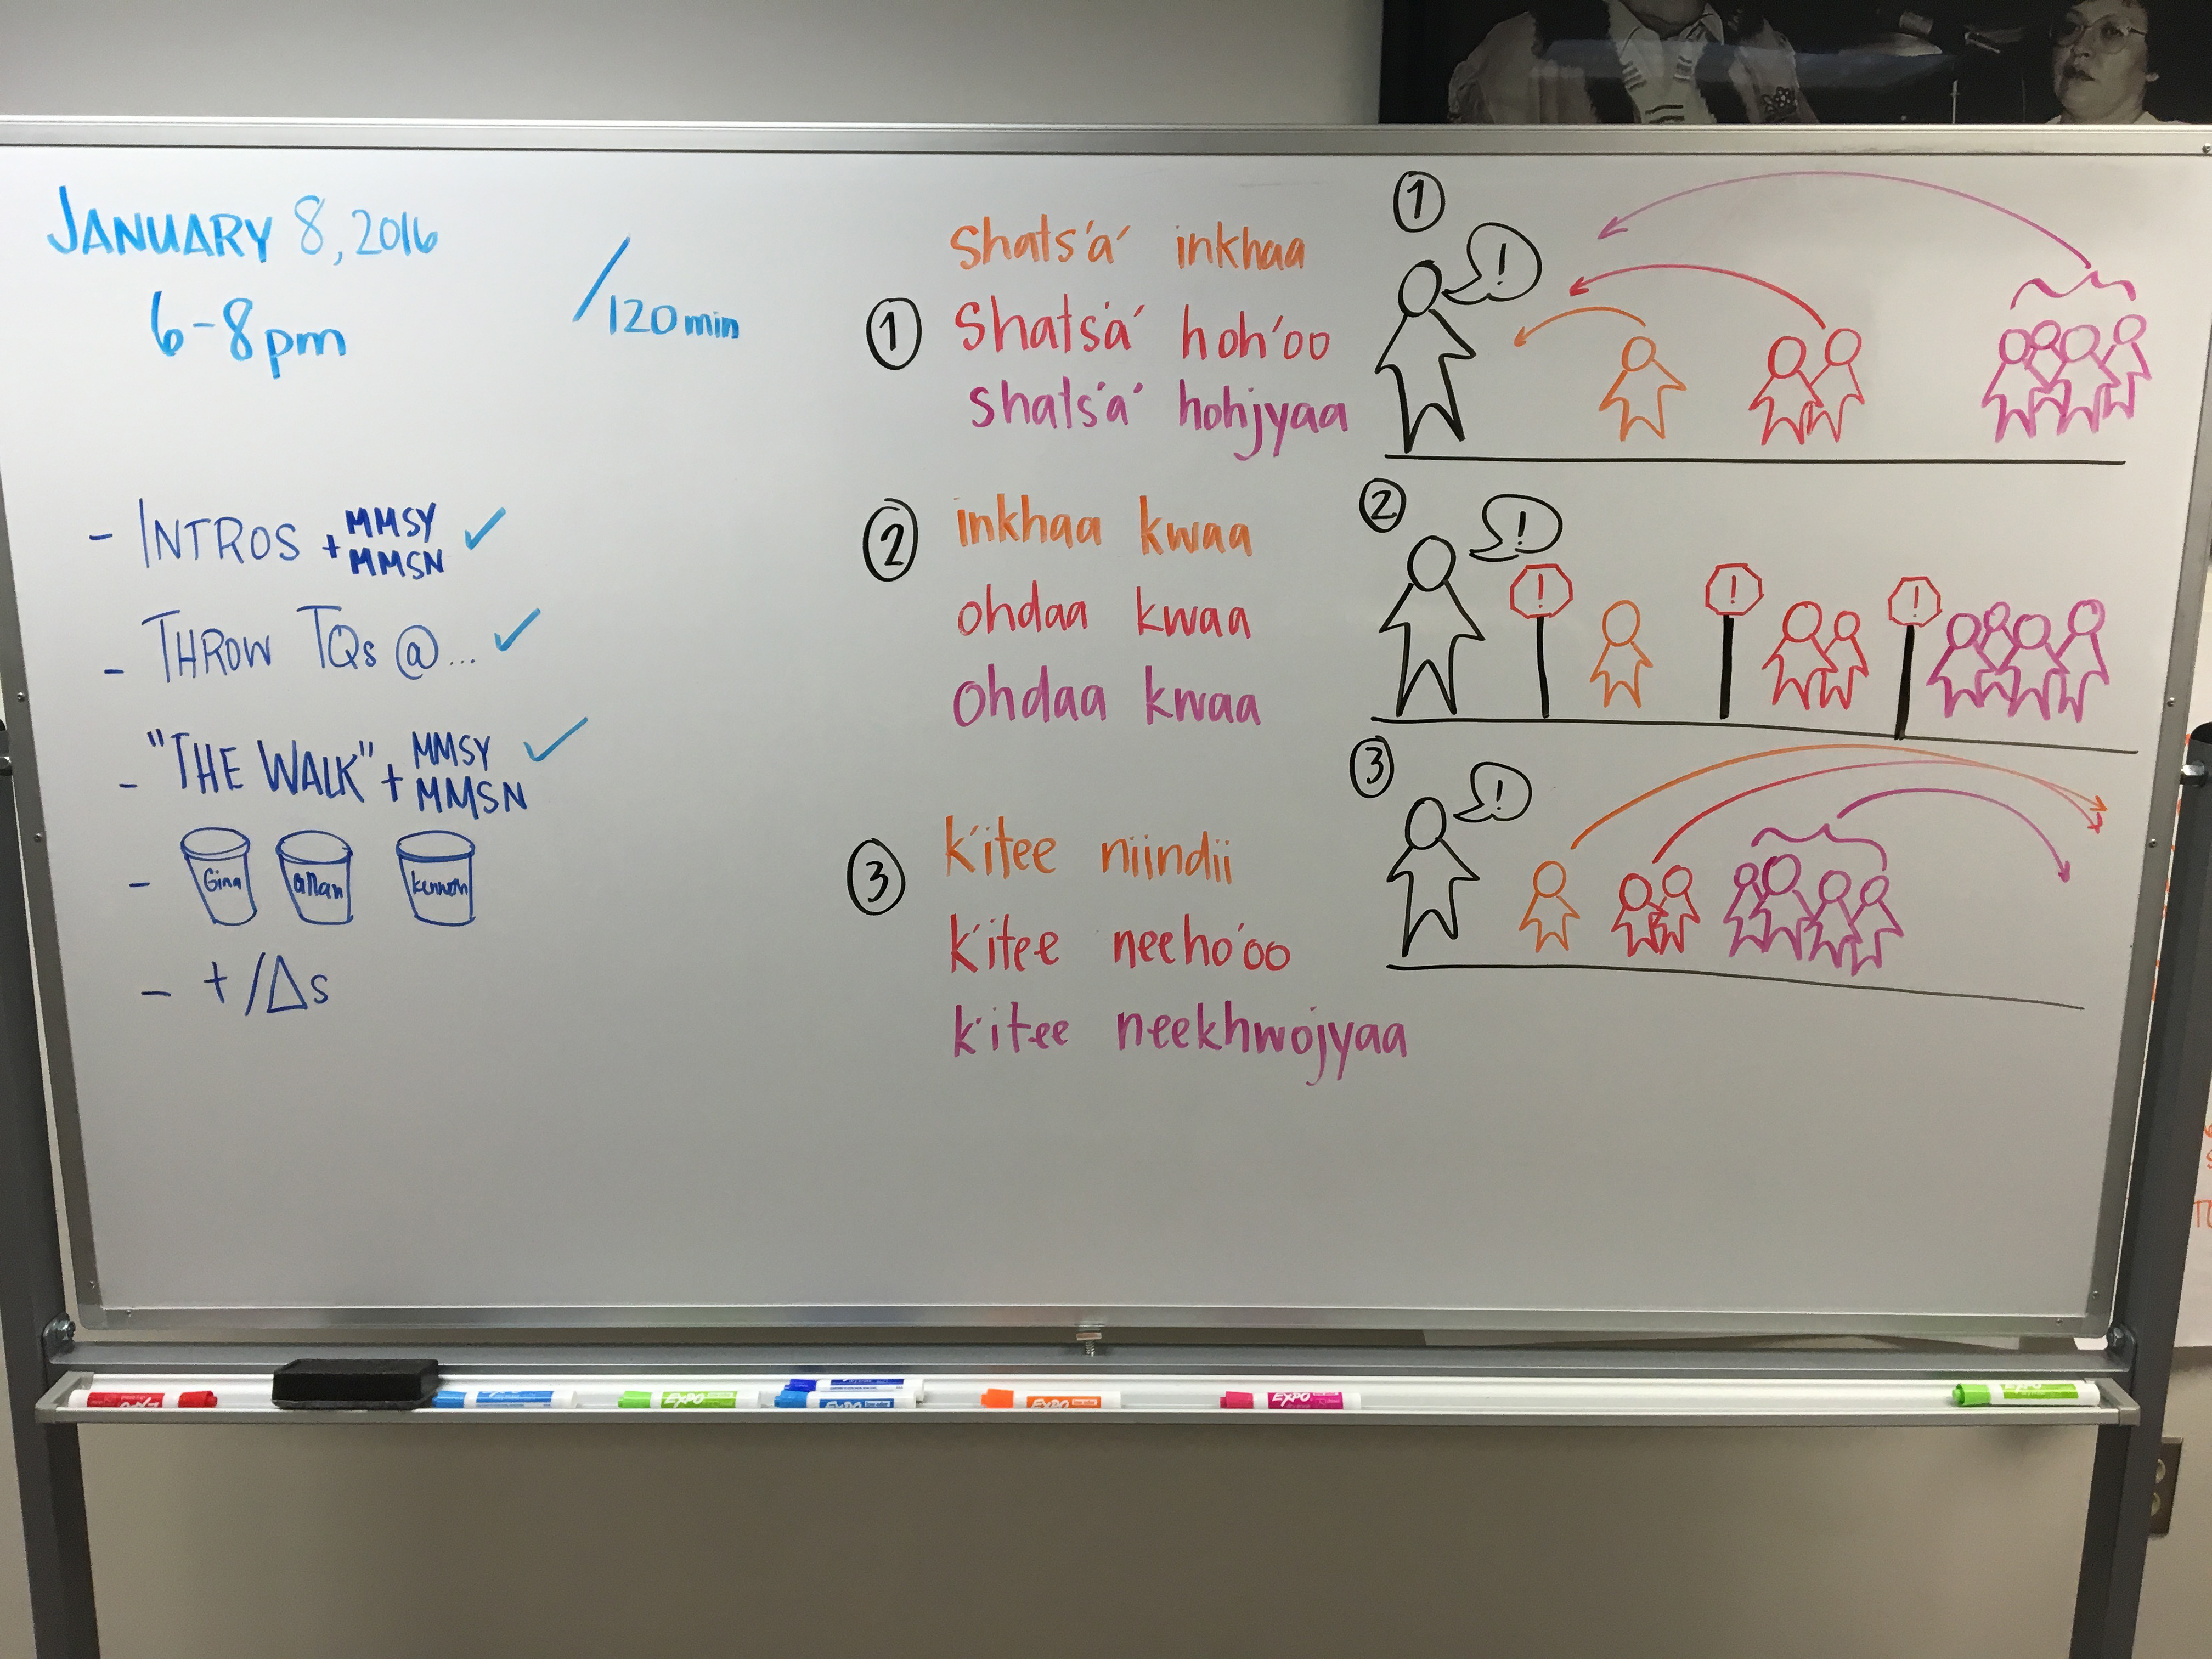 JANUARY 8, 2016
6-8pm
/120min
- INTROS + MMSY ✓
MMSN
- THROW TQs @... ✓
- "THE WALK" + MMSY ✓
MMSN
- Gina allan
- +/Δs
shats'a' inkhaa
① shats'a' hoh'oo
shats'a' hohjyaa
② inkhaa kwaa
ohdaa kwaa
ohdaa kwaa
③ k'itee niindii
k'itee neeho'oo
k'itee neekhwojyaa
①
!
②
!
! ! !
③
!
EXPO
EXPO
EXPO
EXPO